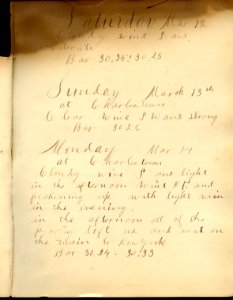 Saturday Mar 12
Cloudy wind S and
Bar 30.35 30.28
Sunday March 13th
at Charlestown
Clear wind S W and strong
Bar 30.26
Monday Mar 14
at Charlestown
Cloudy wind S and light
in the afternoon wind S E and
freshening up with light rain
in the evening.
in the afternoon all of the
party left us and went on
the train to New York
Bar 30.24 - 30.33